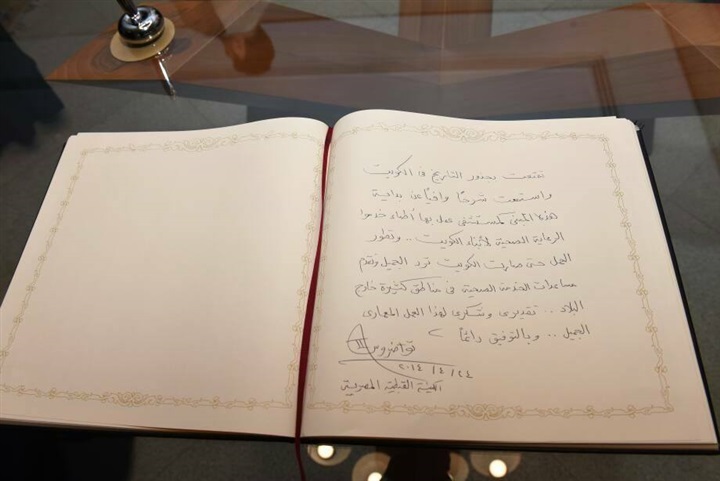 تمتعت بحضور التاريخ في الكويت
واستمعت شرحًا وافيًا عن بداية
هذا المبنى كمستشفى عمل بها أطباء خدموا
الرعاية الصحية لأبناء الكويت .. وتطور
العمل حتى صارت الكويت ترد الجميل وتقدم
مساعدات الخدمة الصحية في مناطق كثيرة خارج
البلاد .. تقديري وشكري لهذا العمل المعماري
الجميل .. وبالتوفيق دائمًا
تواضروس II
٢٠١٤ / ٤ / ٢٤
الكنيسة القبطية المصرية